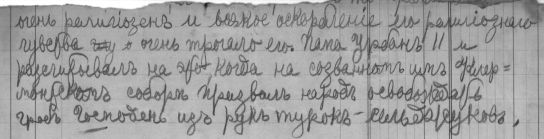 очень религіозенъ и всякое оскорбленіе его религіознаго
чувства очень трогало его. Папа Урбанъ II и
разсчитывалъ на это когда на созванномъ имъ Клер=
монскомъ соборѣ призвалъ народъ освобождать
гробъ Господень изъ рукъ турокъ-сельджуковъ,